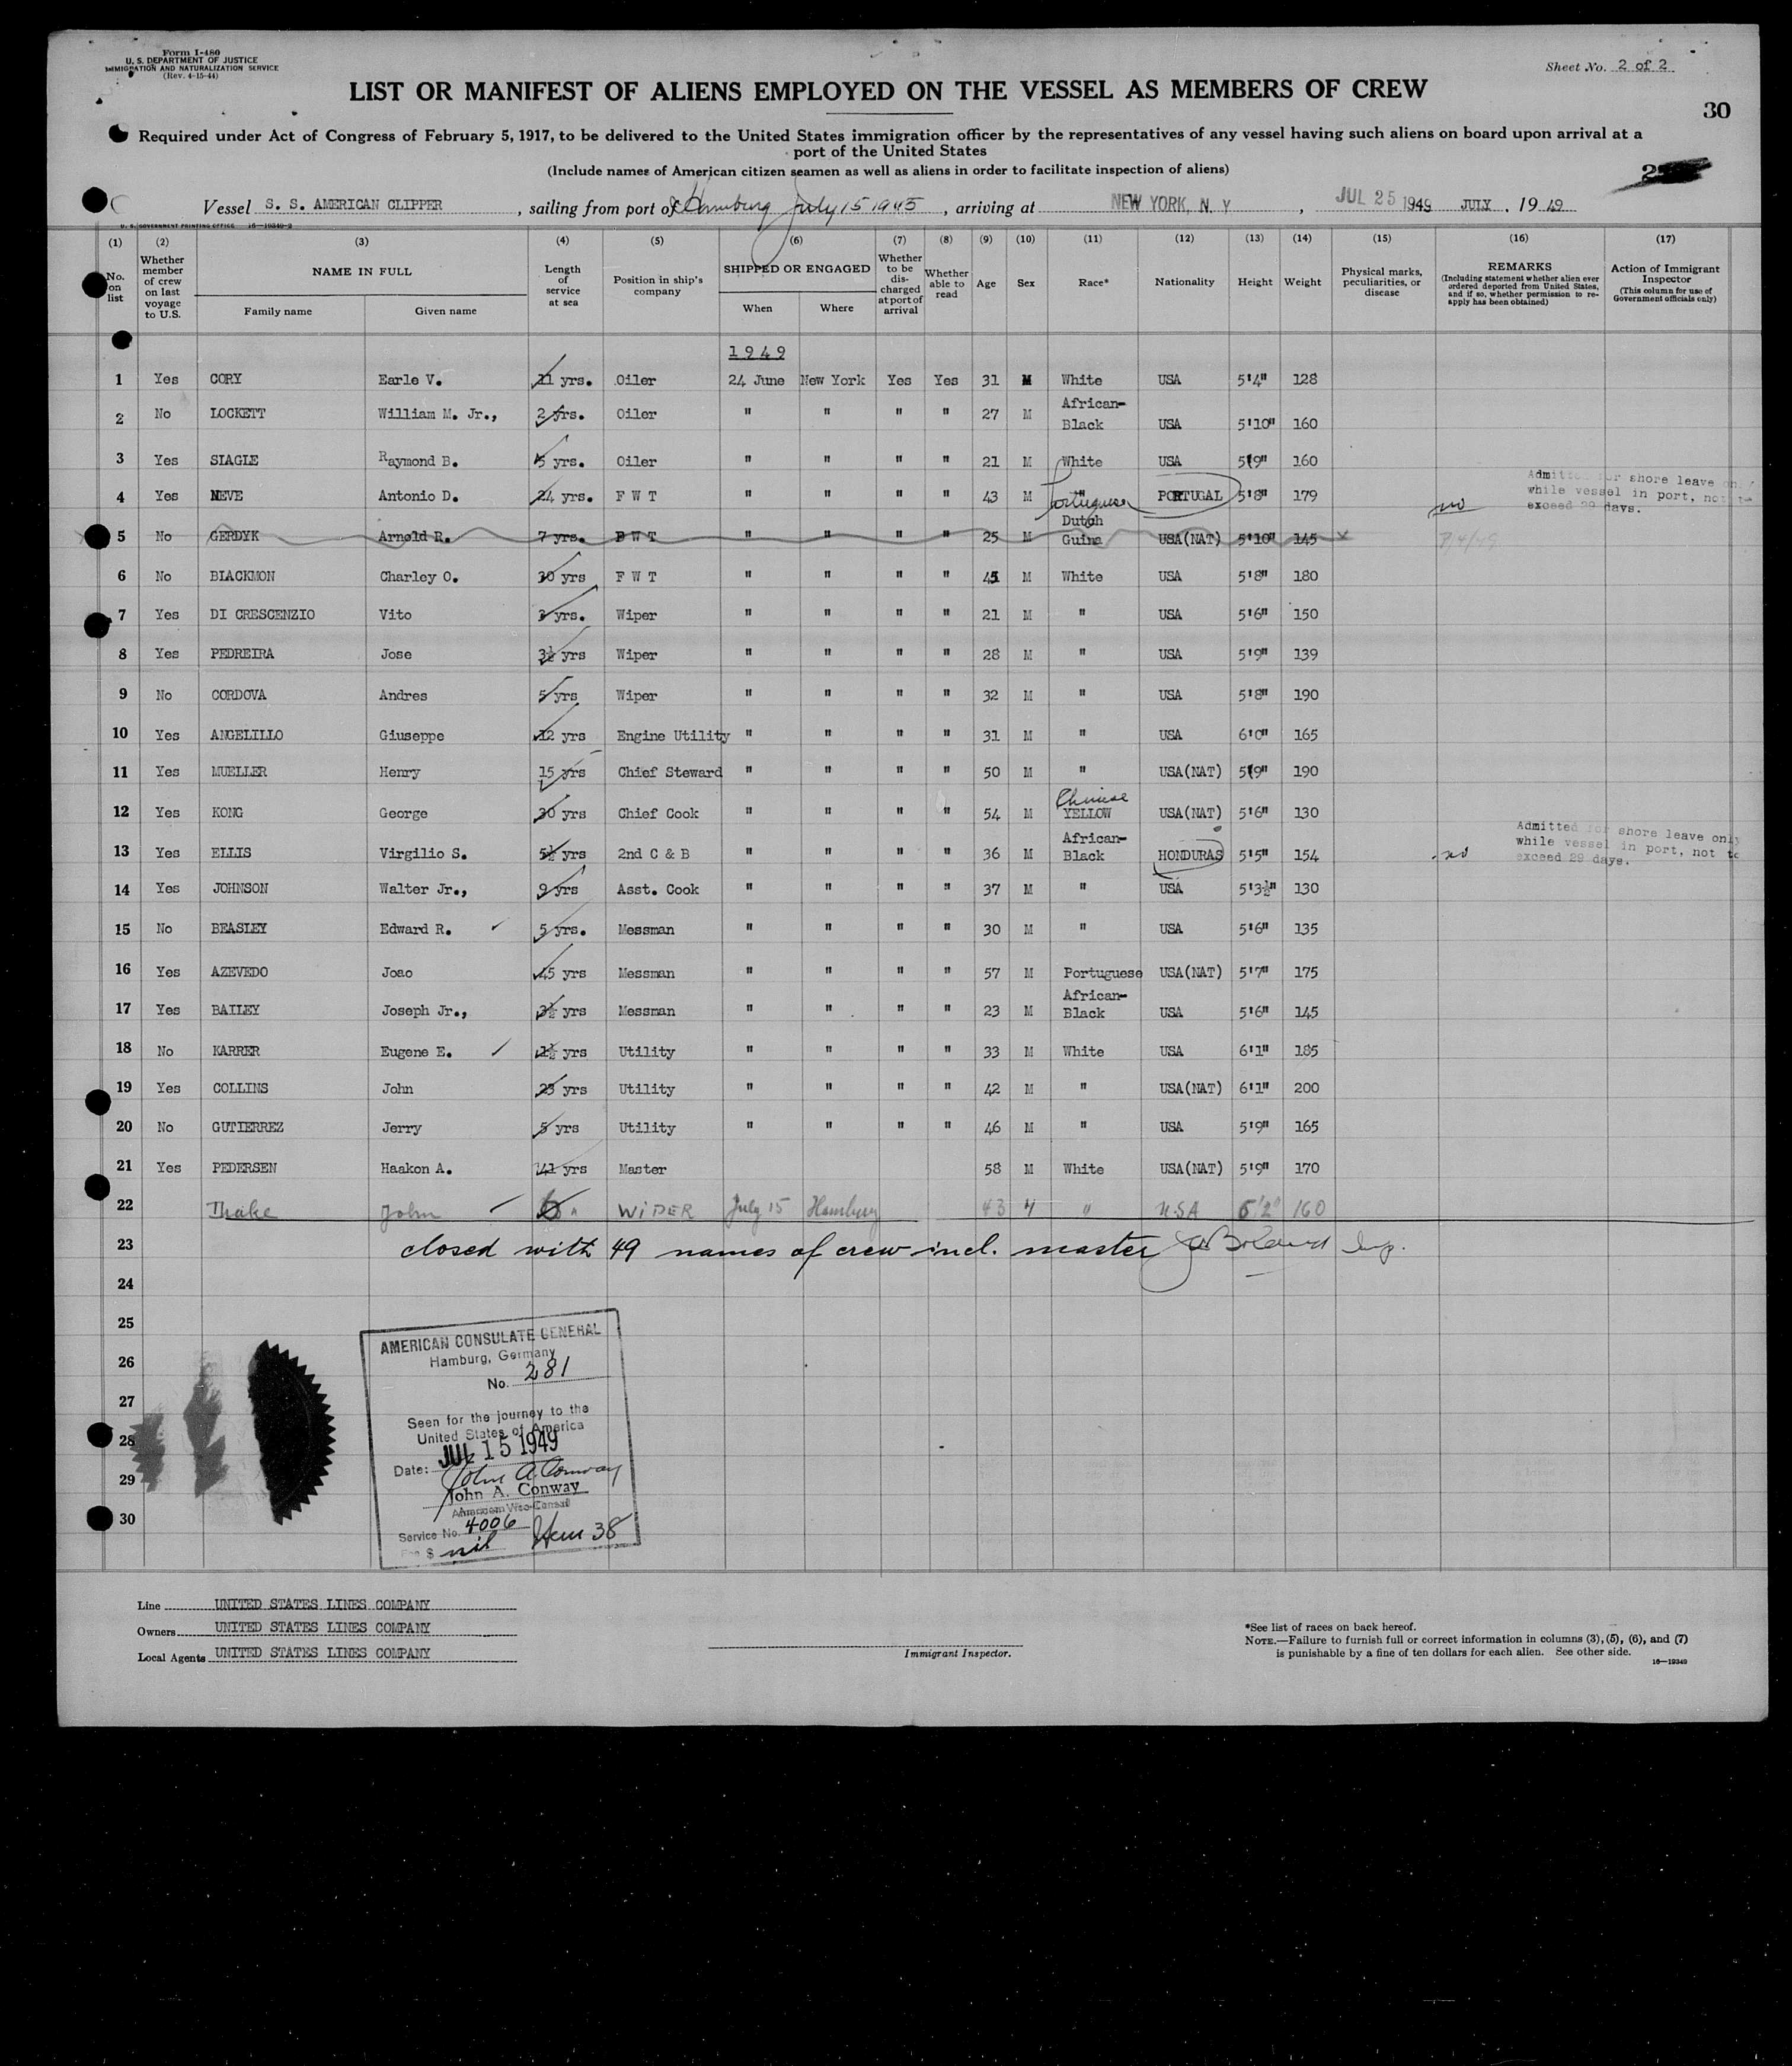 Form I-480
U. S. DEPARTMENT OF JUSTICE
IMMIGRATION AND NATURALIZATION SERVICE
(Rev. 4-15-44)
Sheet No. 2 of 2
LIST OR MANIFEST OF ALIENS EMPLOYED ON THE VESSEL AS MEMBERS OF CREW
30
Required under Act of Congress of February 5, 1917, to be delivered to the United States immigration officer by the representatives of any vessel having such aliens on board upon arrival at a
port of the United States
(Include names of American citizen seamen as well as aliens in order to facilitate inspection of aliens)
Vessel S. S. AMERICAN CLIPPER, sailing from port of Hamburg July 15 1945, arriving at NEW YORK, N. Y, JUL 25 1949 JULY, 19 49
U. S. GOVERNMENT PRINTING OFFICE 16-19349-2
(1) (2) (3) (4) (5) (6) (7) (8) (9) (10) (11) (12) (13) (14) (15) (16) (17)
No. on list
Whether member of crew on last voyage to U.S.
NAME IN FULL
Family name Given name
Length of service at sea
Position in ship's company
SHIPPED OR ENGAGED
When Where
Whether to be discharged at port of arrival
Whether able to read
Age
Sex
Race*
Nationality
Height
Weight
Physical marks, peculiarities, or disease
REMARKS
(Including statement whether alien ever ordered deported from United States, and if so, whether permission to reapply has been obtained)
Action of Immigrant Inspector
(This column for use of Government officials only)
1949
1 Yes CORY Earle V. 11 yrs. Oiler 24 June New York Yes Yes 31 M White USA 5'4" 128
2 No LOCKETT William M. Jr., 2 yrs. Oiler " " " " 27 M African-Black USA 5'10" 160
3 Yes SIAGLE Raymond B. 5 yrs. Oiler " " " " 21 M White USA 5'9" 160
4 Yes NEVE Antonio D. 24 yrs. F W T " " " " 43 M " Portuguese PORTUGAL 5'8" 179 no Admitted for shore leave only while vessel in port, not to exceed 29 days.
5 No GERDYK Arnold R. 7 yrs. F W T " " " " 25 M Dutch Guina USA(NAT) 5'10" 145 x
6 No BLACKMON Charley O. 30 yrs F W T " " " " 45 M White USA 5'8" 180
7 Yes DI CRESCENZIO Vito 3 yrs. Wiper " " " " 21 M " USA 5'6" 150
8 Yes PEDREIRA Jose 3½ yrs Wiper " " " " 28 M " USA 5'9" 139
9 No CORDOVA Andres 5 yrs Wiper " " " " 32 M " USA 5'8" 190
10 Yes ANGELILLO Giuseppe 12 yrs Engine Utility " " " " 31 M " USA 6'0" 165
11 Yes MUELLER Henry 15 yrs Chief Steward " " " " 50 M " USA(NAT) 5'9" 190
12 Yes KONG George 30 yrs Chief Cook " " " " 54 M Chinese YELLOW USA(NAT) 5'6" 130
13 Yes ELLIS Virgilio S. 5½ yrs 2nd C & B " " " " 36 M African-Black HONDURAS 5'5" 154 no Admitted for shore leave only while vessel in port, not to exceed 29 days.
14 Yes JOHNSON Walter Jr., 9 yrs Asst. Cook " " " " 37 M " USA 5'3½" 130
15 No BEASLEY Edward R. 5 yrs. Messman " " " " 30 M " USA 5'6" 135
16 Yes AZEVEDO Joao 45 yrs Messman " " " " 57 M Portuguese USA(NAT) 5'7" 175
17 Yes BAILEY Joseph Jr., 3½ yrs Messman " " " " 23 M African-Black USA 5'6" 145
18 No KARRER Eugene E. 1½ yrs Utility " " " " 33 M White USA 6'1" 185
19 Yes COLLINS John 23 yrs Utility " " " " 42 M " USA(NAT) 6'1" 200
20 No GUTIERREZ Jerry 5 yrs Utility " " " " 46 M " USA 5'9" 165
21 Yes PEDERSEN Haakon A. 41 yrs Master 58 M White USA(NAT) 5'9" 170
22 Thake John WIPER July 15 Hamburg 43 " USA 5'2" 160
23 closed with 49 names of crew incl. master Insp.
24
25
26
27
28
29
30
AMERICAN CONSULATE GENERAL
Hamburg, Germany
No. 281
Seen for the journey to the
United States of America
Date: JUL 15 1949
John A. Conway
John A. Conway
American Vice-Consul
Service No. 4006
Fee $ nil Item 38
Line UNITED STATES LINES COMPANY
Owners UNITED STATES LINES COMPANY
Local Agents UNITED STATES LINES COMPANY
Immigrant Inspector.
*See list of races on back hereof.
NOTE.—Failure to furnish full or correct information in columns (3), (5), (6), and (7)
is punishable by a fine of ten dollars for each alien. See other side.
16—19349